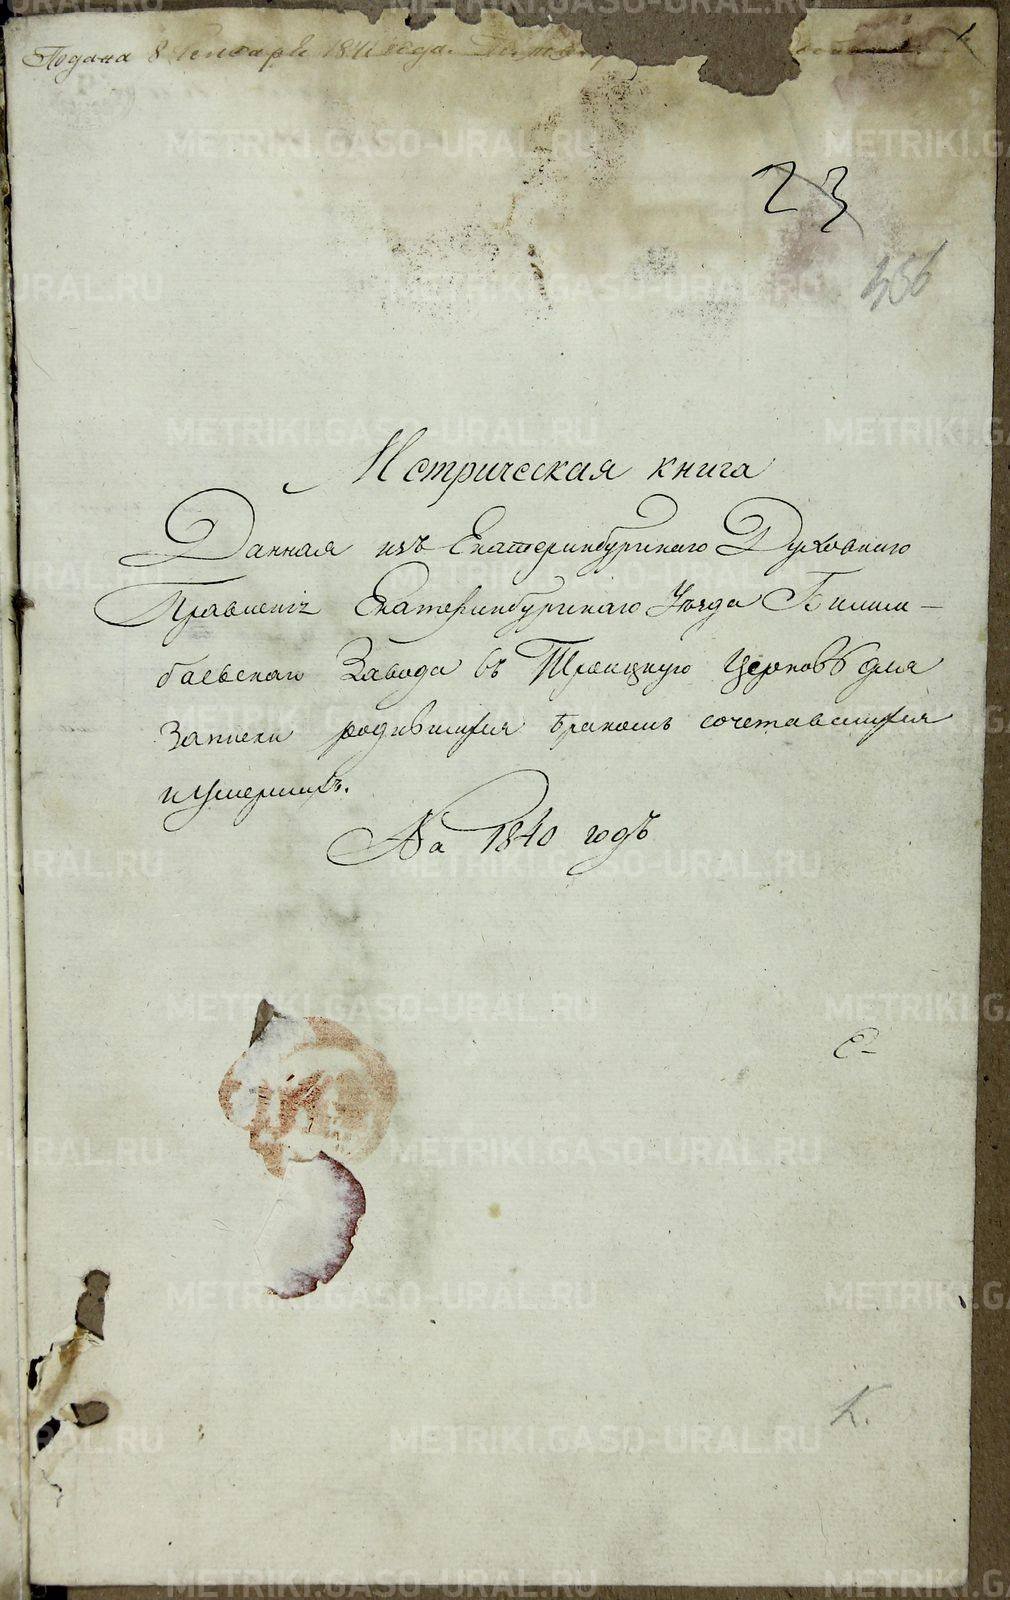 Подана 8 Генваря 1841 года.
1
23
456
Метрическая книга
Данная изъ Екатеринбургскаго Духовнаго
Правленія Екатеринбургскаго Уѣзда Билим-
баевскаго Завода въ Троицкую Церковь для
Записки родившихся бракомъ сочетавшихся
и умершихъ.
На 1840 годъ
METRIKI.GASO-URAL.RU